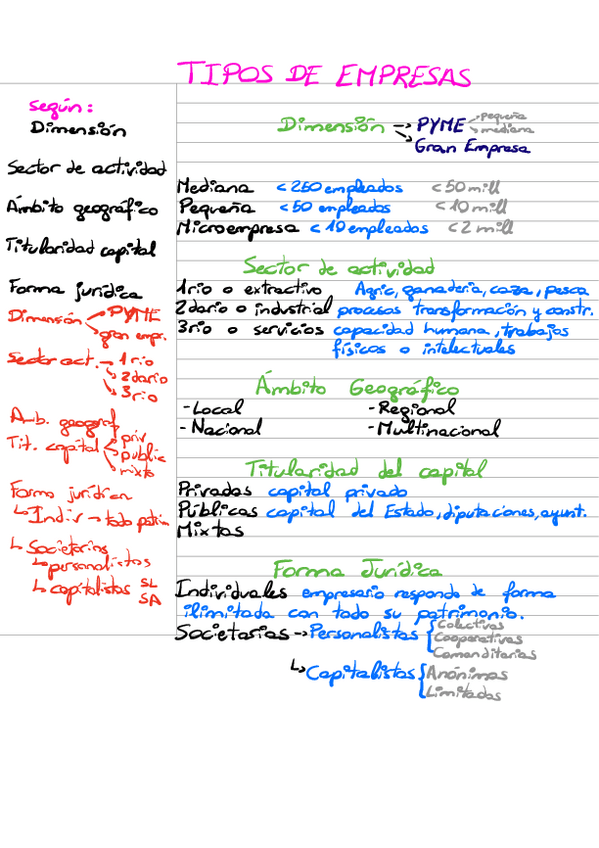 TIPOS DE EMPRESAS
según:
Dimensión
Sector de actividad
Ámbito geográfico
Titularidad capital
Forma jurídica
Dimensión → PYME
gran empr.
Sector act. → 1rio
→ 2dario
→ 3rio
Amb. geograf
Tit. capital priv
public
mixta
Forma jurídica
↳ Indiv → todo patrim
↳ Societarias
↳ personalistas
↳ capitalistas SL
SA
Dimensión → PYME pequeña
mediana
Gran Empresa
Mediana <250 empleados <50 mill
Pequeña <50 empleados <10 mill
Microempresa <10 empleados <2 mill
Sector de actividad
1rio o extractivo Agric, ganadería, caza, pesca
2dario o industrial procesos transformación y constr.
3rio o servicios capacidad humana, trabajos
físicos o intelectuales
Ámbito Geográfico
-Local -Regional
-Nacional -Multinacional
Titularidad del capital
Privadas capital privado
Públicas capital del Estado, diputaciones, ayunt.
Mixtas
Forma Jurídica
Individuales empresario responde de forma
ilimitada con todo su patrimonio.
Societarias → Personalistas { Colectivas
Cooperativas
Comanditarias
↳ Capitalistas { Anónimas
Limitadas